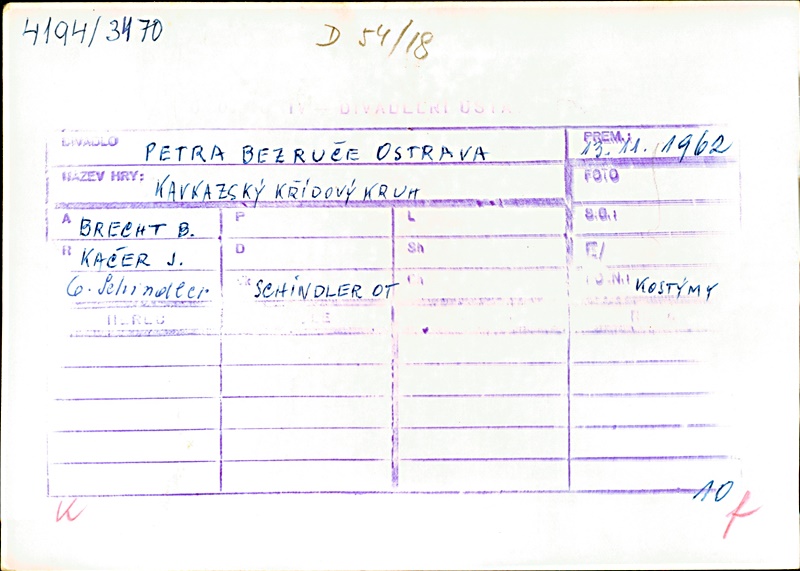 4194/3470 D 54/18
IV – DIVADELNÍ ÚSTA
DIVADLO PETRA BEZRUČE OSTRAVA PREM.: 13. 11. 1962
NÁZEV HRY: KAVKAZSKÝ KŘÍDOVÝ KRUH FOTO
A BRECHT B. P L S.G.:
R KAČER J. D Sh F/
O. Schindler SCHINDLER OT Ch KOSTÝMY
HEREC
10
K f